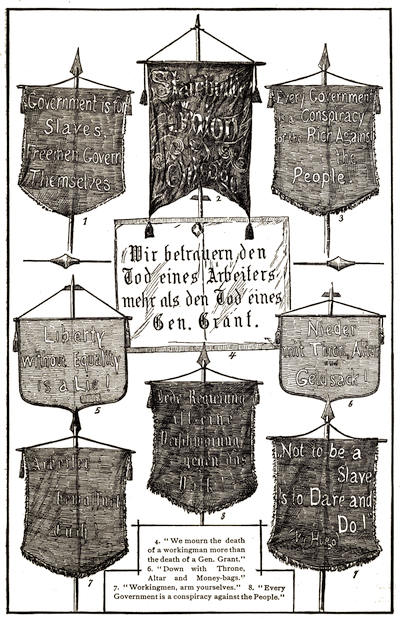 Government is for
Slaves
Freemen Govern
Themselves
1
Union
2
Every Government
is a Conspiracy
of the Rich Against
the
People.
3
Wir betrauern den
Tod eines Arbeiters
mehr als den Tod eines
Gen. Grant.
4
Liberty
without Equality
is a Lie!
5
Nieder
mit Thron, Altar
und
Geldsack!
6
Jede Regierung
ist eine
Verschwörung
gegen das
Volk
8
Arbeiter
bewaffnet
Euch!
7
Not to be a
Slave
is to Dare and
Do!
(V. Hugo)
4. "We mourn the death
of a workingman more than
the death of a Gen. Grant."
6. "Down with Throne,
Altar and Money-bags."
7. "Workingmen, arm yourselves." 8. "Every
Government is a conspiracy against the People."